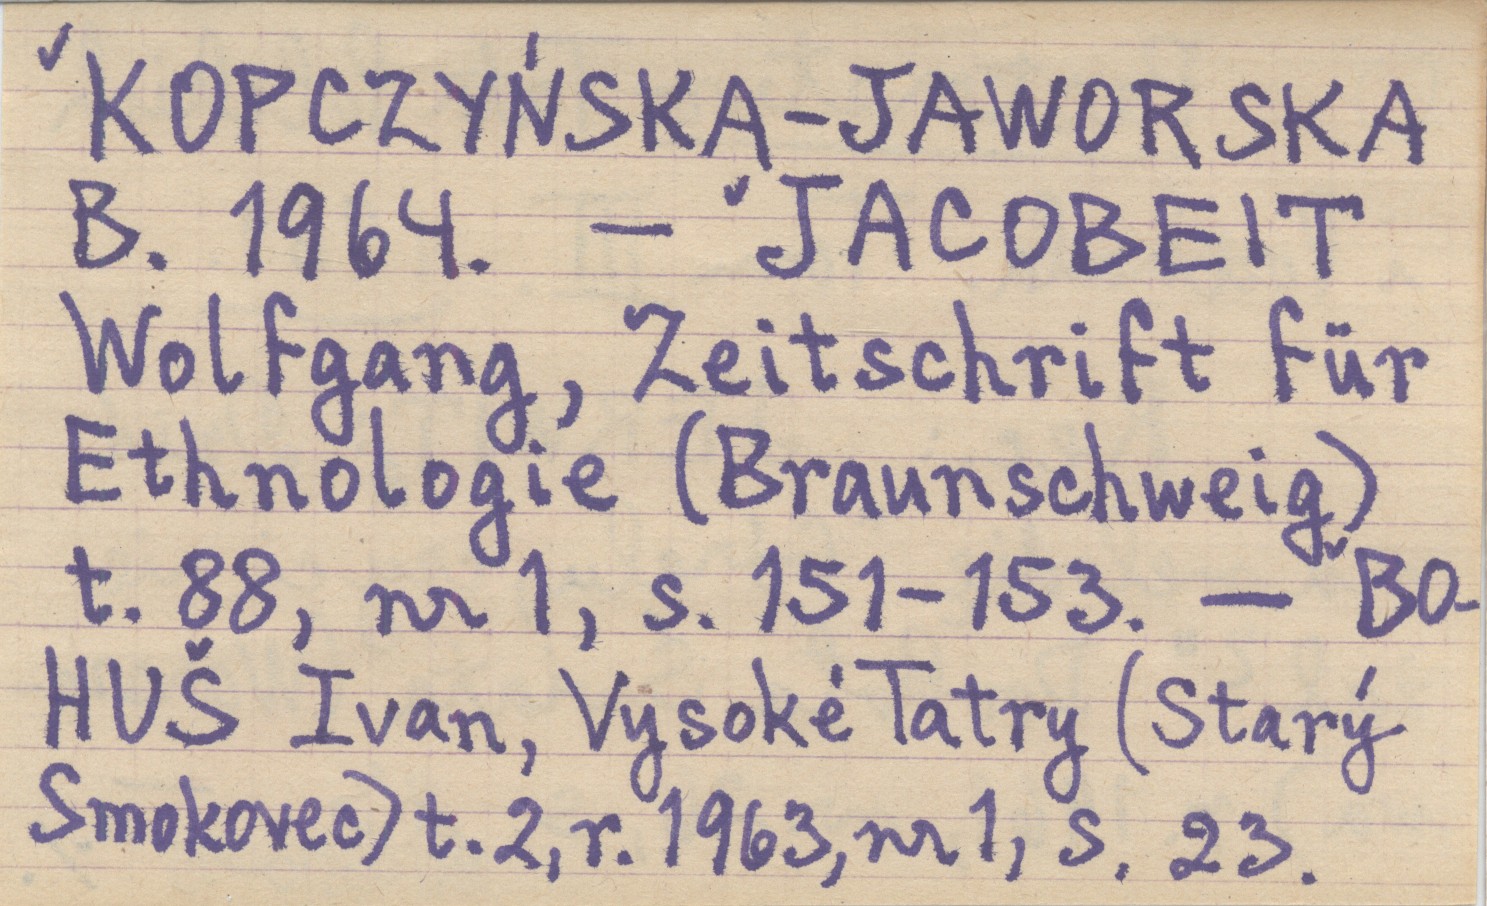 ✓KOPCZYŃSKA-JAWORSKA
B. 1964. — ✓JACOBEIT
Wolfgang, Zeitschrift für
Ethnologie (Braunschweig)
t. 88, nr 1, s. 151-153. — ✓BO-
HUŠ Ivan, Vysoké Tatry (Starý
Smokovec) t. 2, r. 1963, nr 1, s. 23.